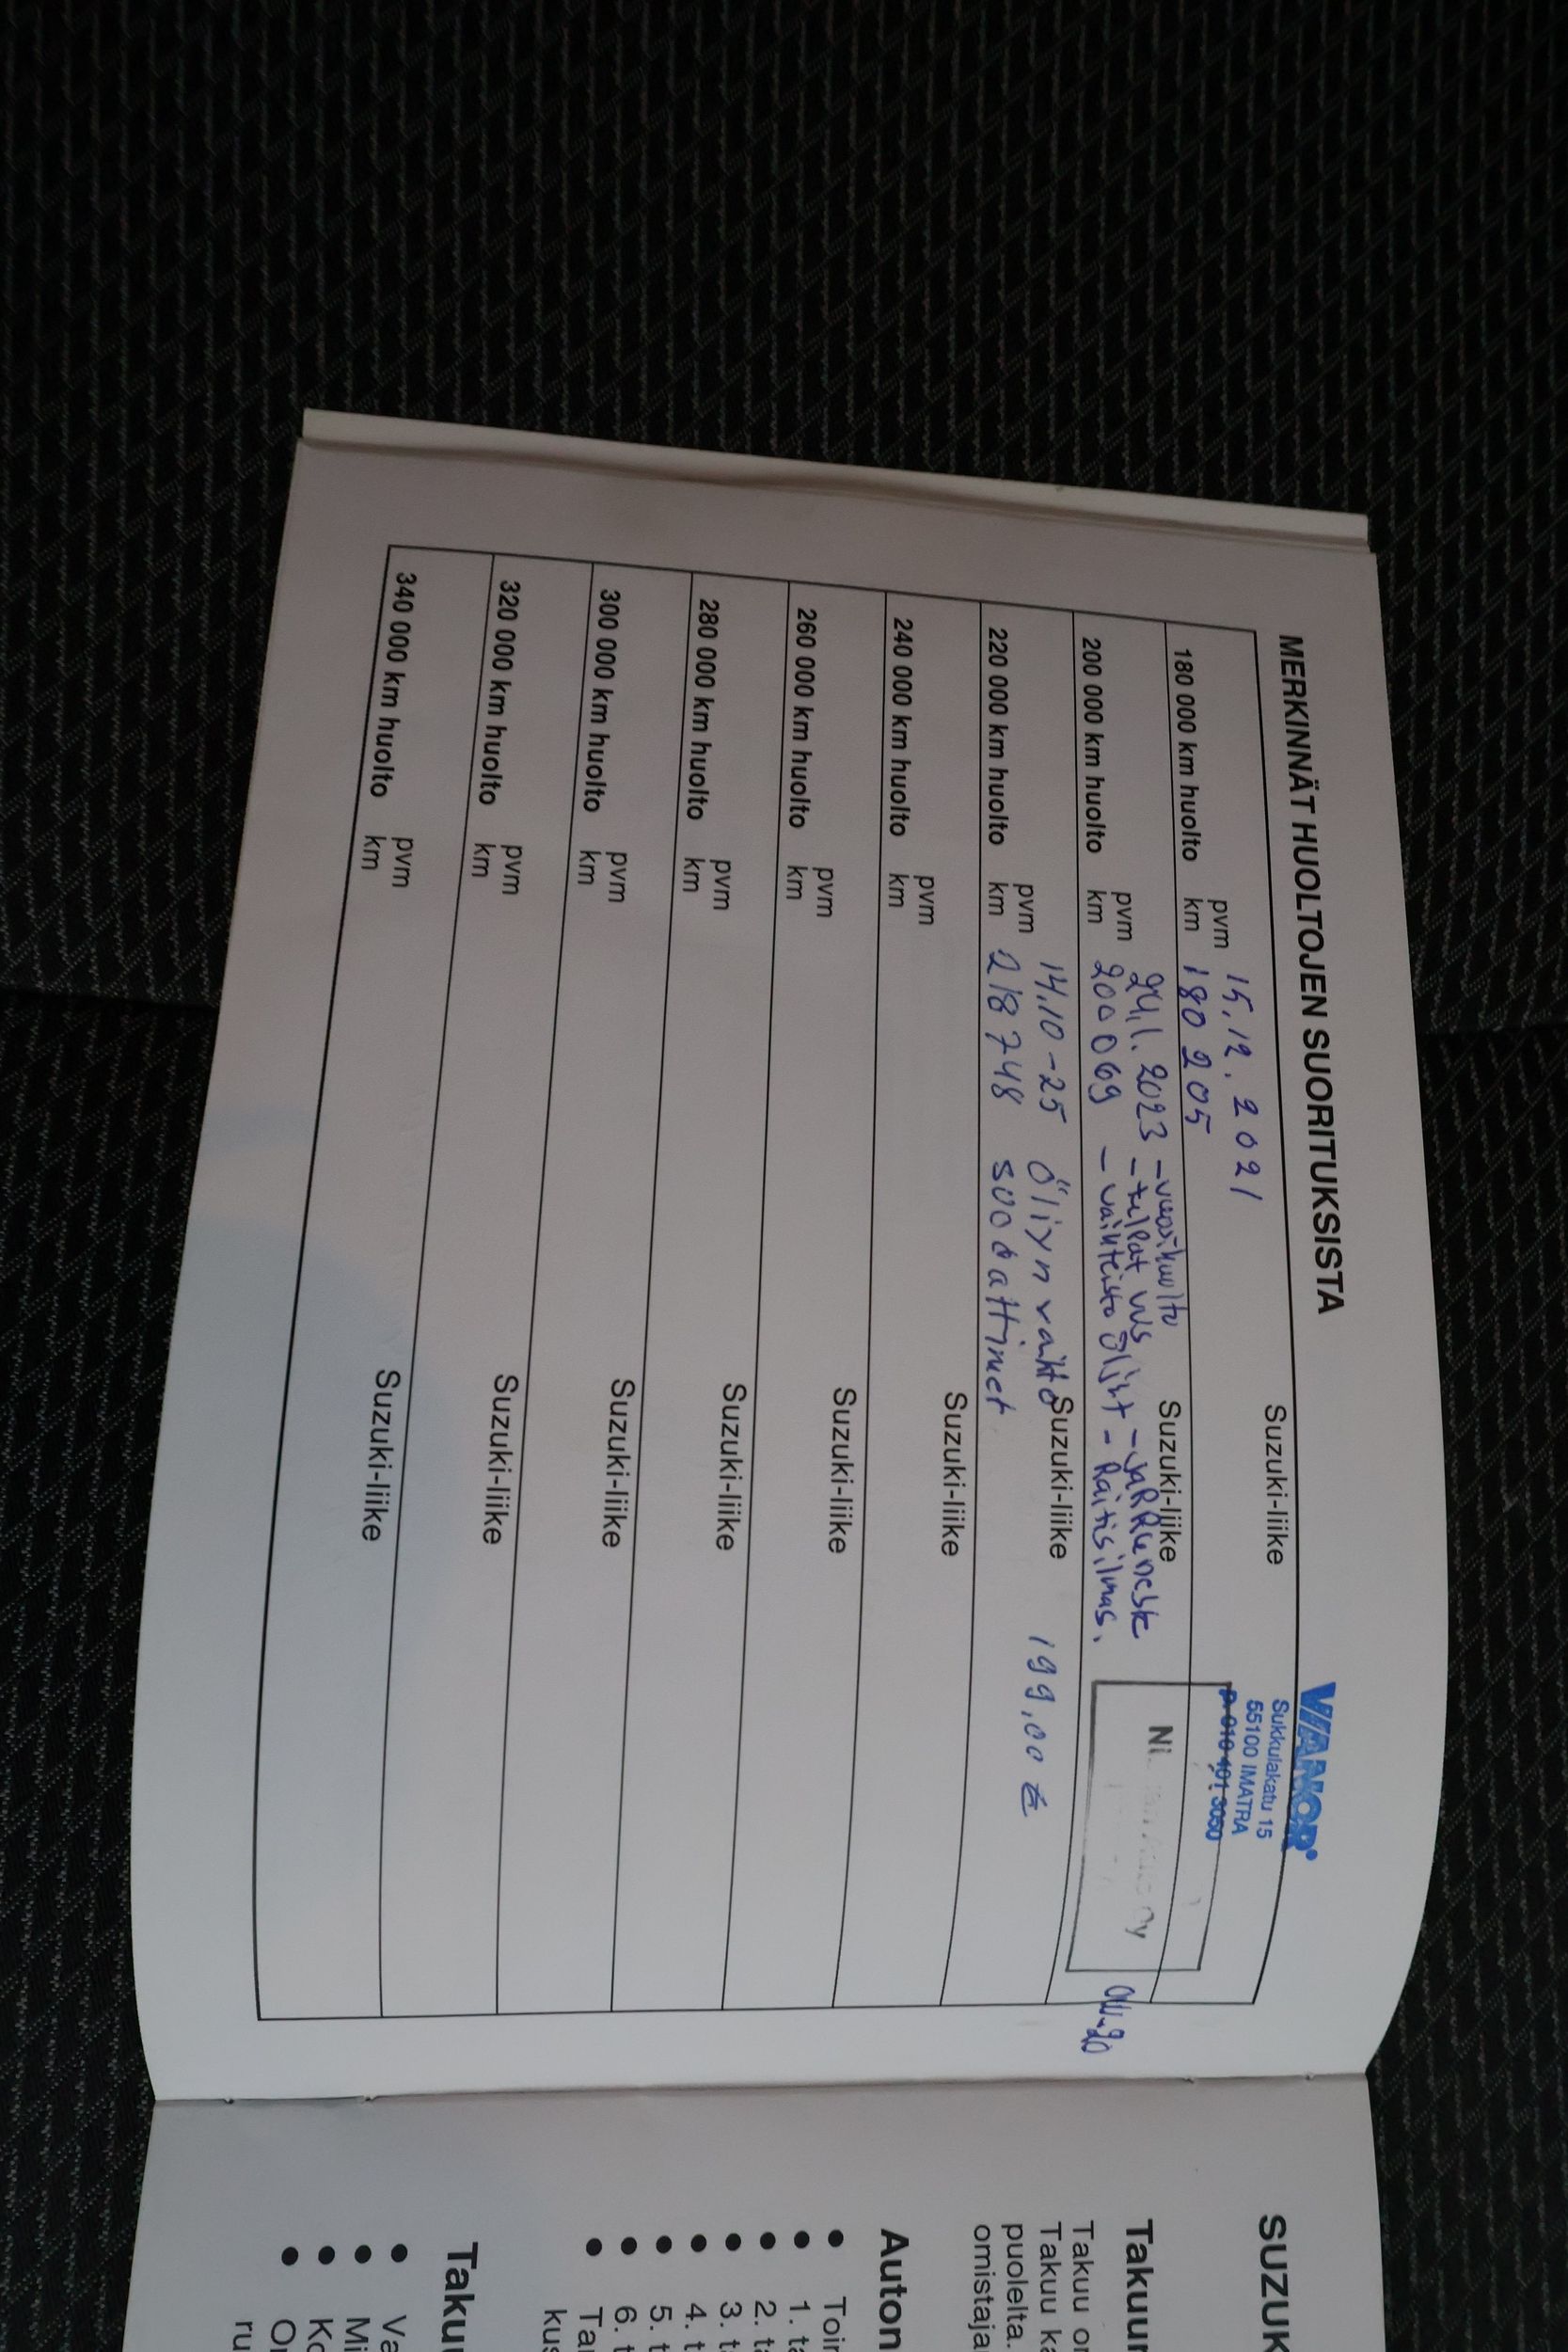 MERKINNÄT HUOLTOJEN SUORITUKSISTA
VIANOR
Sukkulakatu 15
55100 IMATRA
P. 010 401 3050
180 000 km huolto pvm 15.12.2021 Suzuki-liike
km 180 205
200 000 km huolto pvm 24.1.2023 - vuosihuolto Suzuki-liike
- tulpat uus - jaRRuneste
km 200 069 - vaihteisto öljyt - Raitisilmas.
Oy
220 000 km huolto pvm 14.10-25 Öliyn vaihto Suzuki-liike 199,00 €
km 218 748 suodattimet
240 000 km huolto pvm Suzuki-liike
km
260 000 km huolto pvm Suzuki-liike
km
280 000 km huolto pvm Suzuki-liike
km
300 000 km huolto pvm Suzuki-liike
km
320 000 km huolto pvm Suzuki-liike
km
340 000 km huolto pvm Suzuki-liike
km
SUZUK
Takuur
Takuu or
Takuu ka
puolelta.
omistaja
Auton
• Toir
• 1. ta
• 2. ta
• 3. ta
• 4. t
• 5. t
• 6. t
• Tal
kus
Takuu
• Va
• Mi
• Ko
• Or
ru